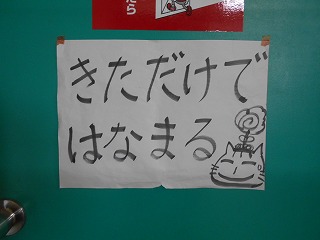 たら
きただけで
はなまる